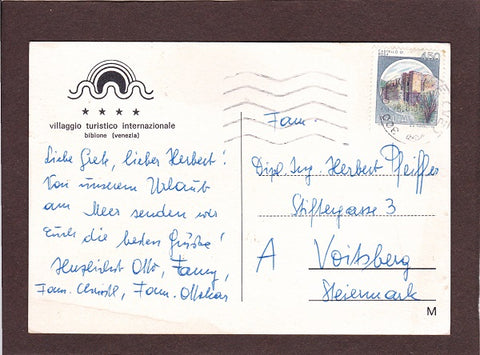 villaggio turistico internazionale
bibione (venezia)
Liebe Grete, lieber Herbert!
Von unserem Urlaub
am Meer senden wir
Euch die besten Grüße!
Herzlichst Otto, Fanny,
Fam. Christl, Fam. Ottokar
450
Fam.
Dipl. Ing. Herbert Pfeiffer
Stiftergasse 3
A Voitsberg
Steiermark
M